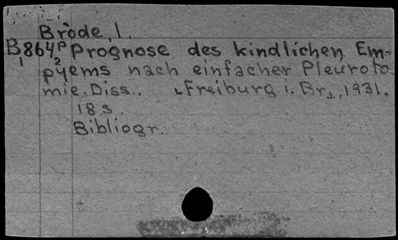 Bròde, I.
B864p Prognose des kindlichen Em-
1 2 pyems nach einfacher Pleuroto
mie. Diss. Freiburg i. Br., 1931.
18 s.
Bibliogr.